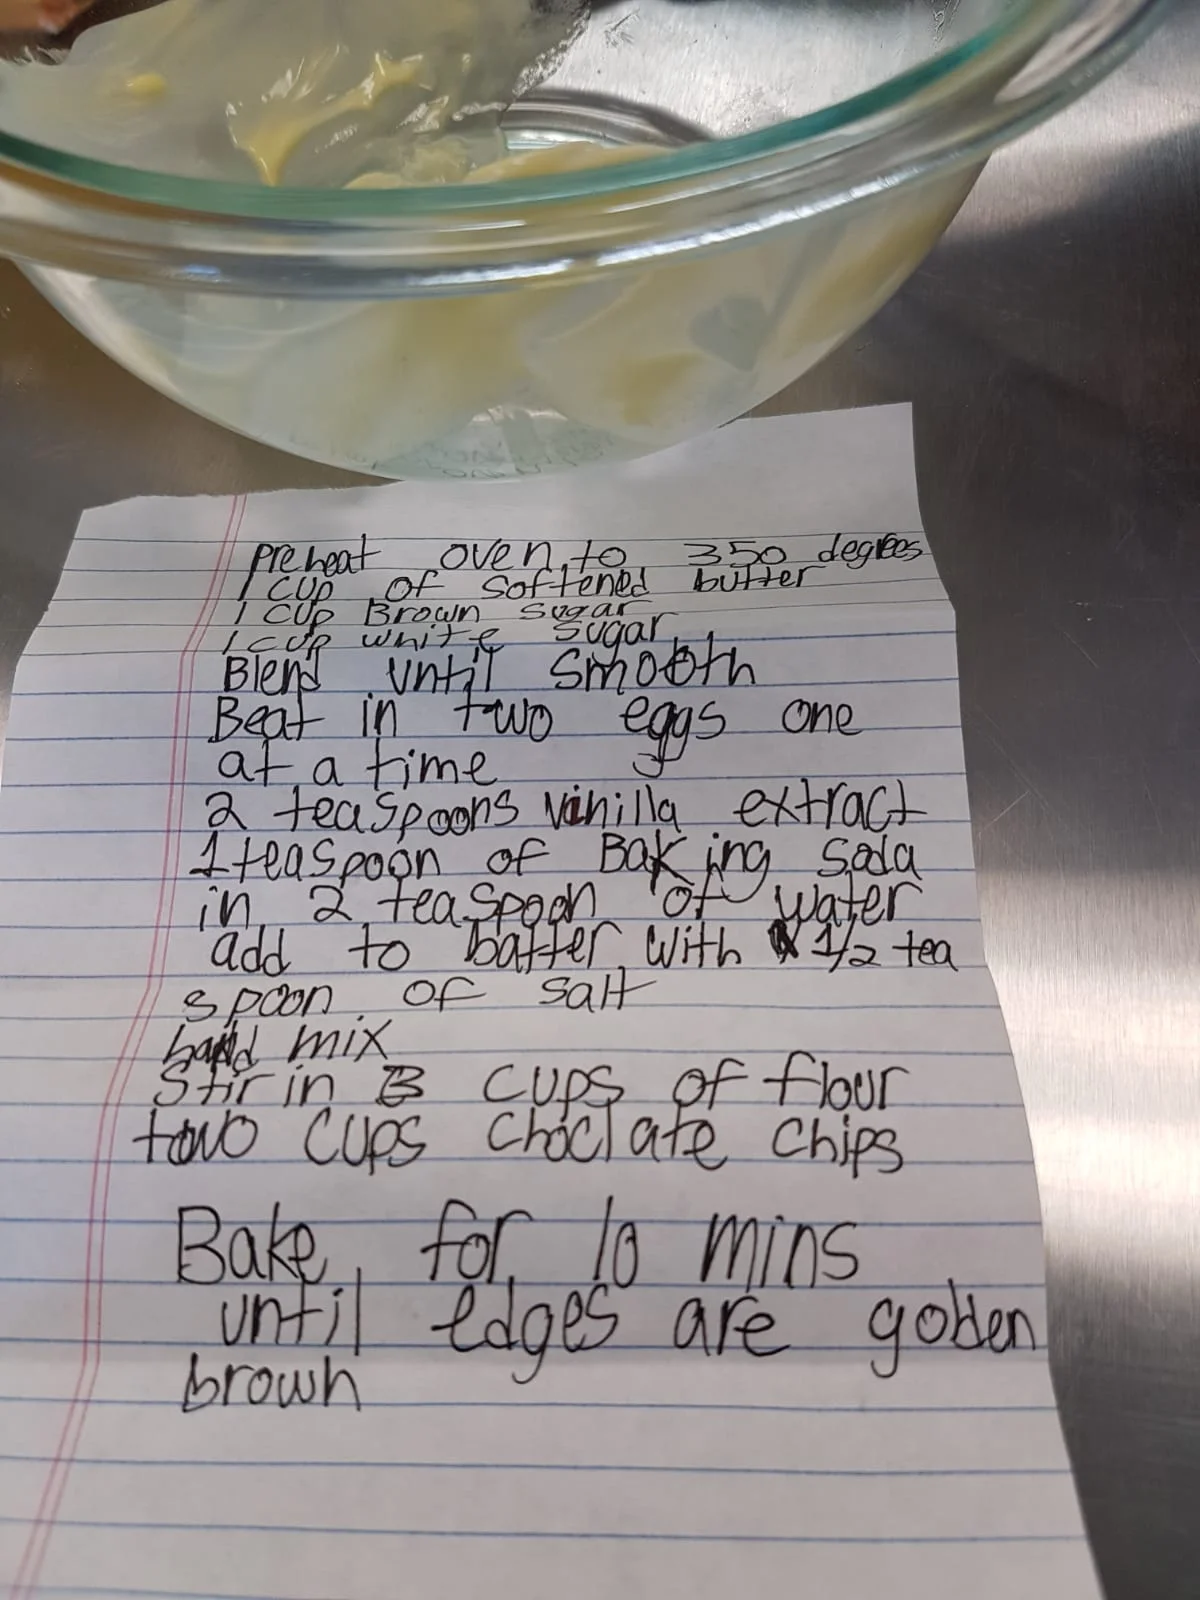 preheat oven to 350 degrees
1 cup of softened butter
1 cup Brown sugar
1 cup white sugar
Blend until smooth
Beat in two eggs one
at a time
2 teaspoons vinilla extract
1 teaspoon of Baking soda
in 2 teaspoon of water
add to batter with 1/2 tea
spoon of salt
hand mix
Stir in 3 cups of flour
two cups choclate chips
Bake for 10 mins
until edges are golden
brown